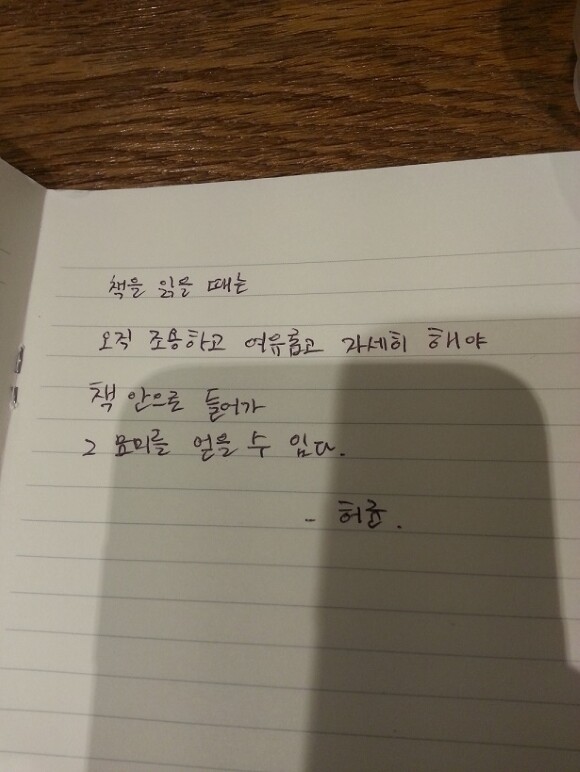 책을 읽을 때는
오직 조용하고 여유롭고 자세히 해야
책 안으로 들어가
그 묘미를 얻을 수 있다.
- 허균.